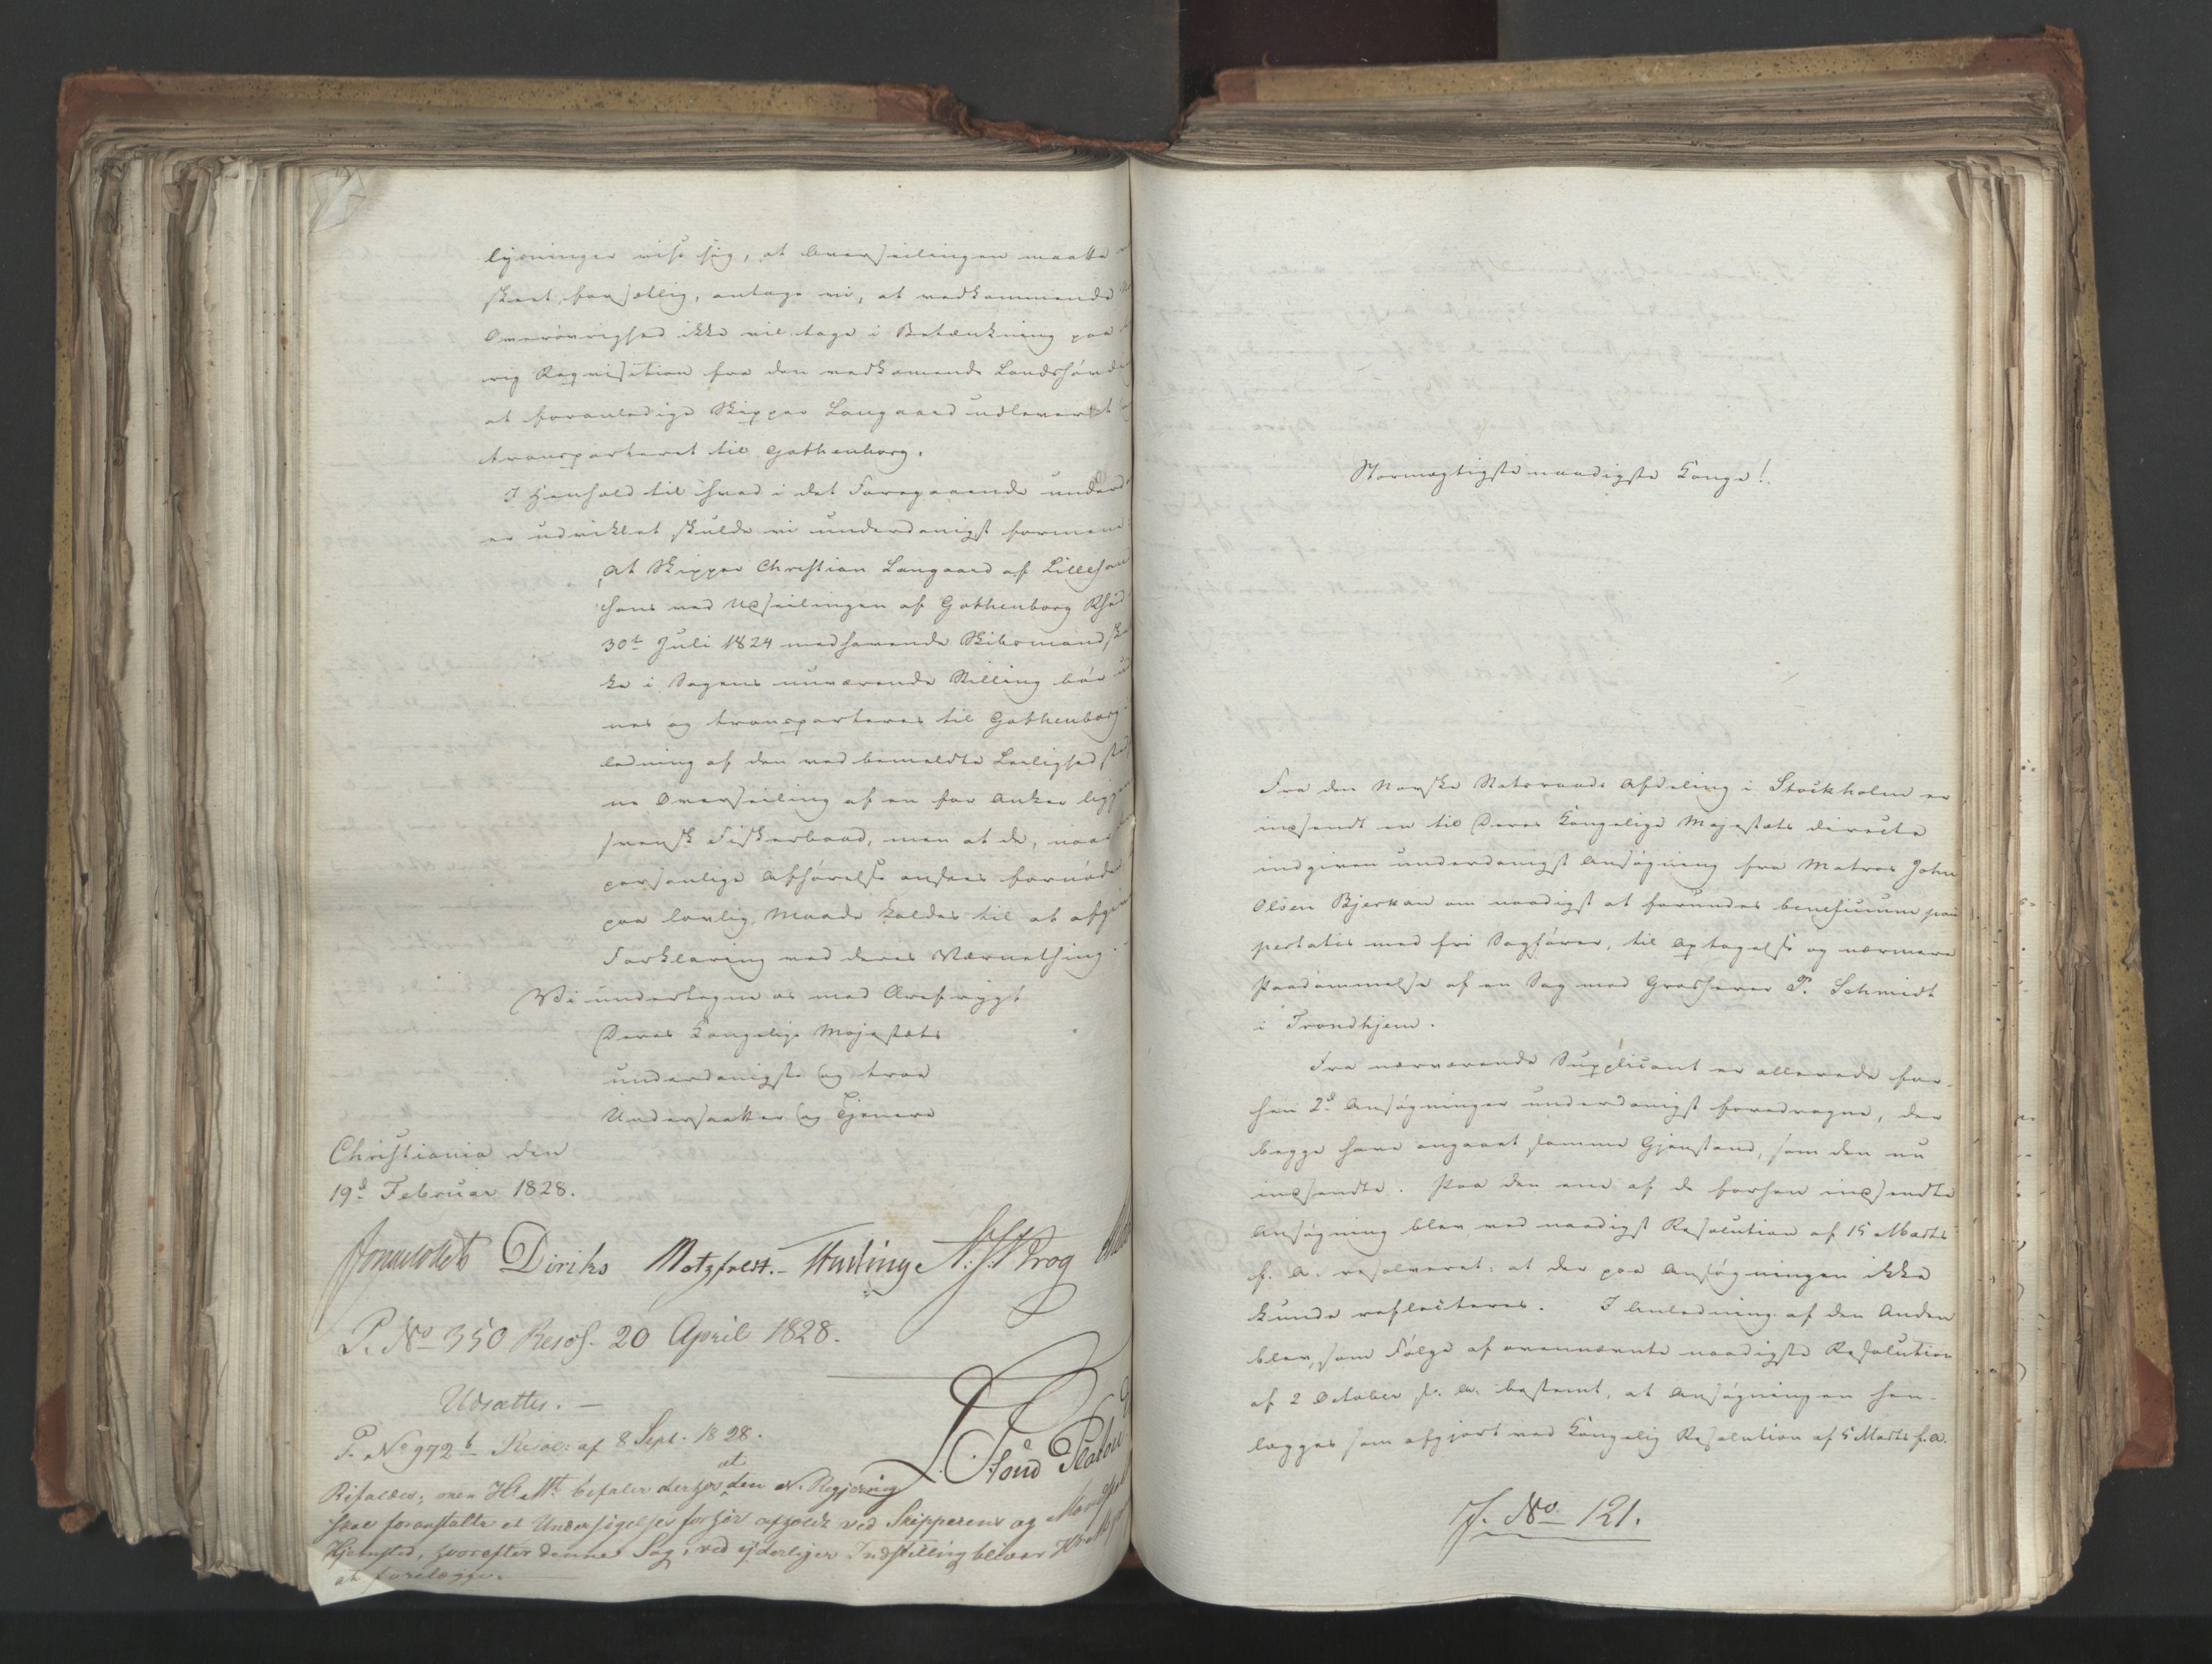 lysninger vise sig, at Overseilingen maatte
skeet forsætlig, antage vi, at vedkommende
Overøvrighed ikke vil tage i Betænkning paa
rig Reqvisition fra den vedkomende Landshøvd
at foranledige Skipper Langaard udleveret
transporteret til Gothenborg.
I Henhold til hvad i det Foregaaende underd
er udviklet skulde vi underdanigst formene:
At Skipper Christian Langaard af Lillesan
hans ved Udseilingen af Gothenborg Rhed
30te Juli 1824 medhavende Skibsmandsk
ke i Sagens nuværende Stilling bør
res og transporteres til Gothenborg
ledning af den ved bemeldte Leilighed
ne Overseiling af en for Anker ligg
svensk Fiskerbaad, men at de, naar
personlige Afhørelse ansees fornøde
paa lovlig Maade kaldes til at afgi
Forklaring ved deres Værnething.
Vi undertegne os med Ærefrygt
Deres Kongelige Majestæts
underdanigste og troe
Undersaatter og Tjenere
Christiania den
19d Februar 1828.
Diriks Motzfeldt. N. J. Krog
P. No 350 Resol. 20 April 1828.
Udsættes. —
P. No 972b Resol: af 8 Sept. 1828.
at
Bifaldes; men H. Mt. befaler derhos den N. Regjering
skal foranstalte et Undersøgelses forhør afholdt ved Skipperens og Mandsk
Hjemsted, hvorefter denne Sag, ved yderligere Indstilling bliver
at forelægge.
Stormægtigste naadigste Konge!
Fra den Norske Statsraads Afdeling i Stockholm er
indsendt en til Deres Kongelige Majestæts directe
indgiven underdanigst Ansøgning fra Matros John
Olsen Bjerkan om naadigst at forundes beneficium pau
pertatis med fri Sagfører, til Optagelse og nærmere
Paadømmelse af en Sag mod Grosserer P. Schmidt
i Trondhjem.
Fra nærværende Supplicant er allerede for-
hen 2de Ansøgninger underdanigst foredragne, der
begge have angaaet samme Gjenstand, som den nu
indsendte. Paa den ene af de forhen indsendte
Ansøgning blev ved naadigst Resolution af 15 Marts
f. A. resolveret: at der paa Ansøgningen ikke
kunde reflecteres. I Anledning af den Anden
blev, som Følge af ovennævnte naadigste Resolution
af 2 October f. A. bestemt, at Ansøgningen hen-
lægges som afgjort ved Kongelig Resolution af 5 Marts f. A.
J. No 121.